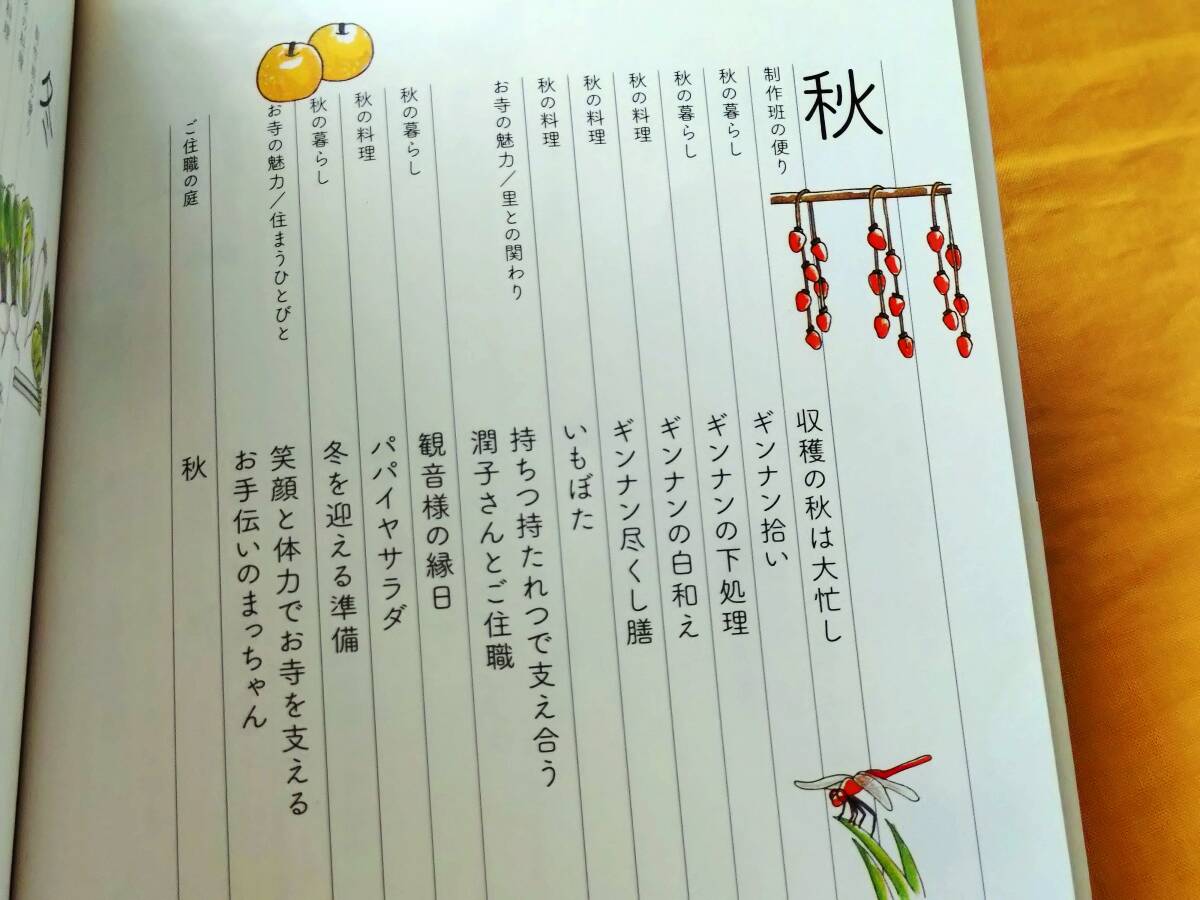 秋
制作班の便り
収穫の秋は大忙し
秋の暮らし
ギンナン拾い
秋の暮らし
ギンナンの下処理
秋の料理
ギンナンの白和え
秋の料理
ギンナン尽くし膳
秋の料理
いもぼた
お寺の魅力／里との関わり
持ちつ持たれつで支え合う
潤子さんとご住職
秋の暮らし
観音様の縁日
秋の料理
パパイヤサラダ
秋の暮らし
冬を迎える準備
お寺の魅力／住まうひとびと
笑顔と体力でお寺を支える
お手伝いのまっちゃん
ご住職の庭
秋